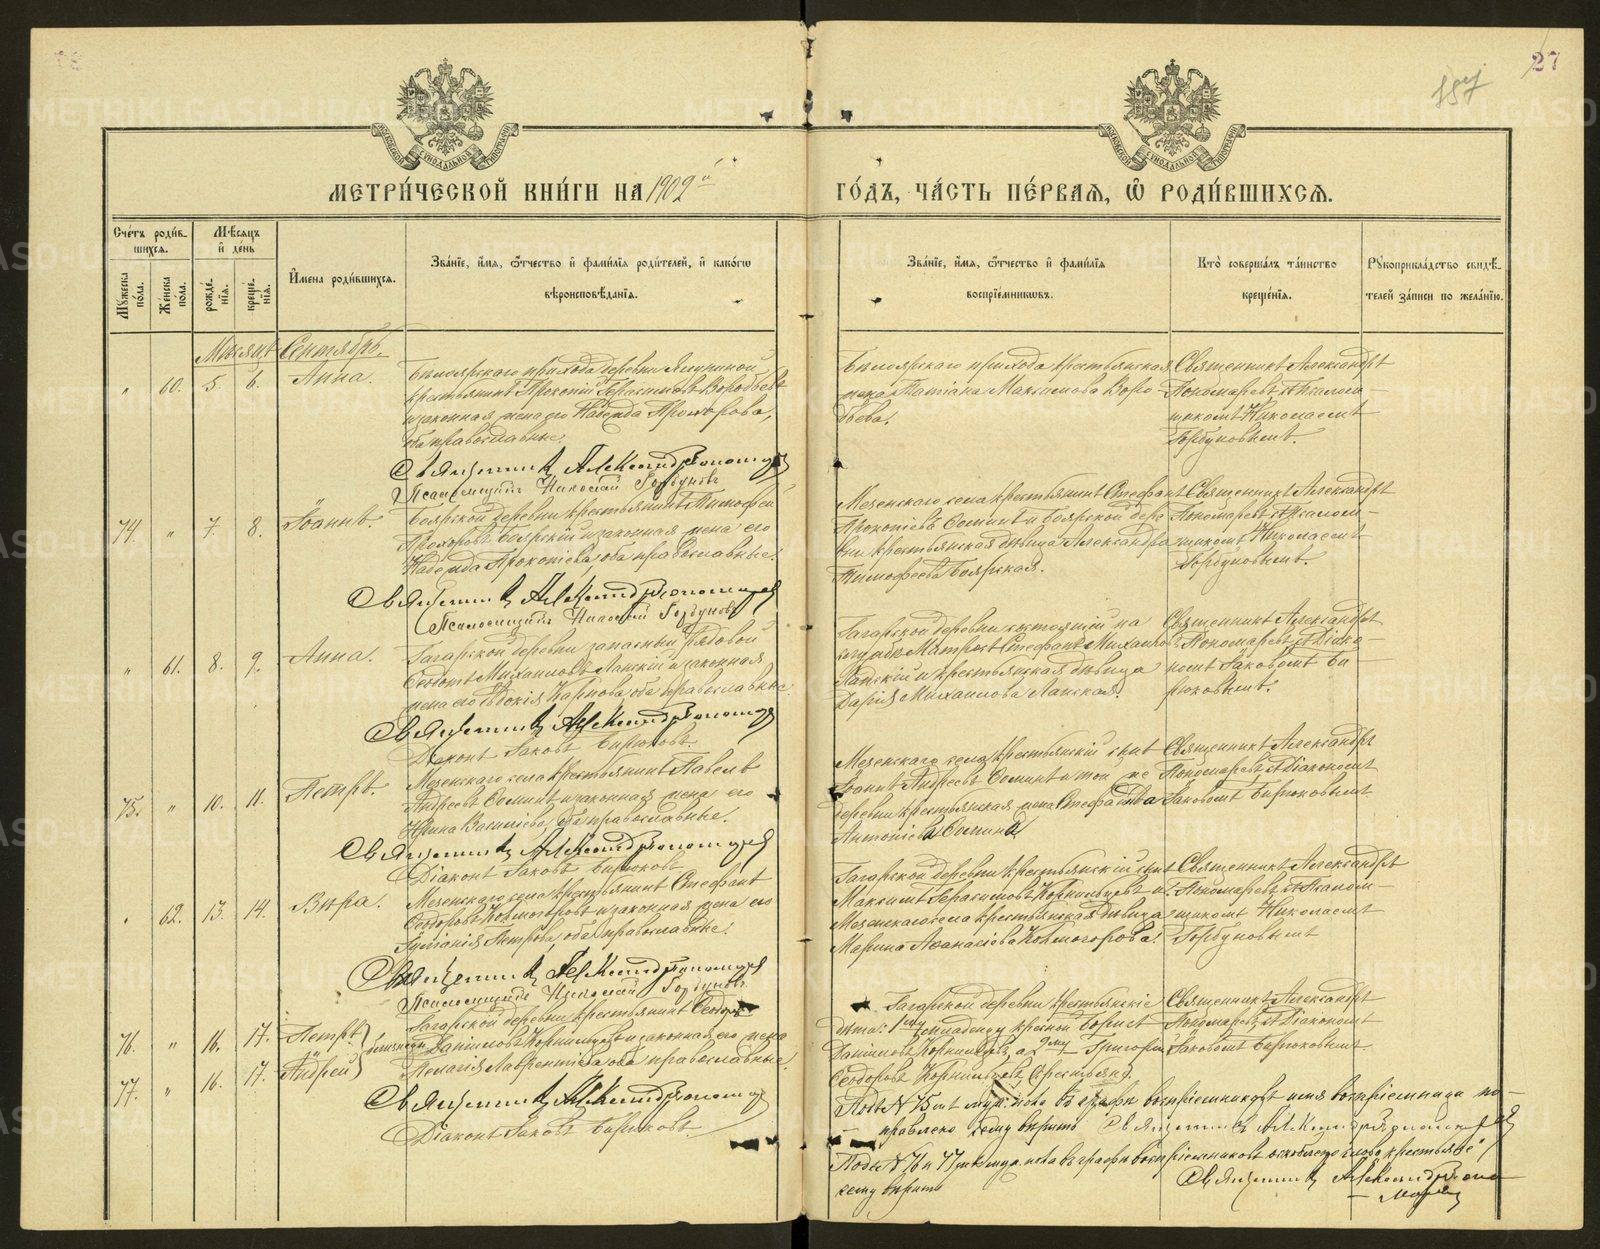 27
187
МЕТРИ́ЧЕСКОЙ КНИ́ГИ НА 1902й
ГО́ДЪ, ЧА́СТЬ ПЕ́РВАѦ, Ѿ РОДИ́ВШИХСѦ.
Сче́тъ роди́в-
шихся.
Мѣ́сяцъ
и҆ де́нь
Мꙋ́жеска
по́ла.
Же́нска
по́ла.
рожде́-
нїѧ.
креще́-
нїѧ.
И҆мена̀ роди́вшихсѧ.
Зва́нїе, и҆́мѧ, ѻ҆́тчество и҆ фами́лїѧ роди́телей, и҆ како́гѡ
вѣроисповѣ́данїѧ.
Зва́нїе, и҆́мѧ, ѻ҆́тчество и҆ фами́лїѧ
воспрїе́мникѡвъ.
Кто̀ соверша́лъ та́инство
креще́нїѧ.
Рꙋкоприкла́дство свидѣ́-
телей за́писи по жела́нїю.
Мѣсяцъ Сентябрь.
" 60. 5. 6. Анна.
Бѣлоярскаго прихода деревни
крестьянинъ Прокопій Герасимовъ Воробьевъ
и законная жена его Надежда Прохорова,
оба православные.
Священникъ Александръ Пономаревъ
Псаломщикъ Николай Горбуновъ
Бѣлоярскаго прихода крестьянская
жена Татіана Максимова Воро-
бьева.
Священникъ Александръ
Пономаревъ съ Псалом-
щикомъ Николаемъ
Горбуновымъ.
74. " 7. 8. Іоаннъ.
Боярской деревни крестьянинъ Тимофей
Прохоровъ Боярскій и законная жена его
Надежда Прокопіева, оба православные.
Священникъ Александръ Пономаревъ
Псаломщикъ Николай Горбуновъ
Мезенскаго села крестьянинъ Стефанъ
Прокопіевъ Ѳоминъ и Боярской дере-
вни крестьянская дѣвица Александра
Тимофеева Боярская.
Священникъ Александръ
Пономаревъ съ Псалом-
щикомъ Николаемъ
Горбуновымъ.
" 61. 8. 9. Анна.
Гагарской деревни запасный рядовой
Ѳедотъ Михаиловъ Лапскій и законная
жена его Евдокія Карпова, оба православные.
Священникъ Александръ Пономаревъ
Діаконъ Іаковъ Бирюковъ.
Гагарской деревни состоящій на
Матросъ Стефанъ Михаиловъ
Лапскій и крестьянская дѣвица
Дарія Михаилова Лапская.
Священникъ Александръ
Пономаревъ съ Діако-
номъ Іаковомъ Би-
рюковымъ.
75. " 10. 11. Петръ.
Мезенскаго села крестьянинъ Павелъ
Андреевъ Ѳоминъ и законная жена его
Ирина Василіева, оба православные.
Священникъ Александръ Пономаревъ
Діаконъ Іаковъ Бирюковъ
Мезенскаго села крестьянскій сынъ
Іоаннъ Андреевъ Ѳоминъ и той же
деревни крестьянская жена
Антоніева Ѳомина
Священникъ Александръ
Пономаревъ съ Діакономъ
Іаковомъ Бирюковымъ.
" 62. 13. 14. Вѣра.
Мезенскаго села крестьянинъ Стефанъ
Ѳедоровъ Колмогоровъ и законная жена его
Іуліанія Петрова, оба православные.
Священникъ Александръ Пономаревъ
Псаломщикъ Николай Горбуновъ
Гагарской деревни крестьянскій сынъ
Максимъ Герасимовъ Корнильцевъ и
Мезенскаго села крестьянская дѣвица
Марина Аѳанасіева Колмогорова.
Священникъ Александръ
Пономаревъ съ Псалом-
щикомъ Николаемъ
Горбуновымъ
76. " 16. 17. Петръ
77. " 16. 17. Андрей
близнецы
Гагарской деревни крестьянинъ Ѳедоръ
Даніиловъ Корнильцевъ и законная его жена
Пелагія Лаврентіева, оба православные.
Священникъ Александръ Пономаревъ
Діаконъ Іаковъ Бирюковъ.
Гагарской деревни крестьянскіе
дѣти: 1му младенцу крестной Борисъ
Даніиловъ Корнильцевъ, а 2му Григорій
Ѳеодоровъ Корнильцевъ
Священникъ Александръ
Пономаревъ съ Діакономъ
Іаковомъ Бирюковымъ.
Подъ № 75мъ муж. пола въ графѣ воспріемниковъ имя воспріемницы по-
правлено сему вѣрить Священникъ Александръ Пономаревъ
Подъ № 76 и 77 муж. пола въ графѣ воспріемниковъ слово крестьяне
сему вѣрить
Священникъ Александръ Поно-
маревъ
METRIKI.GASO-URAL.RU